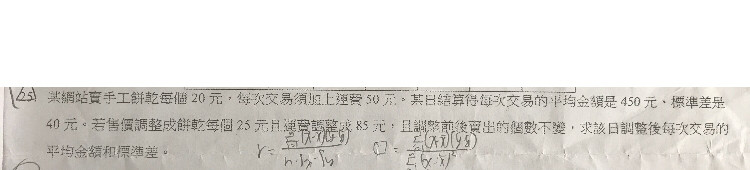 (25) 某網站賣手工餅乾每個 20 元,每次交易須加上運費 50 元。某日結算得每次交易的平均金額是 450 元、標準差是
40 元。若售價調整成餅乾每個 25 元且運費調整成 85 元,且調整前後賣出的個數不變,求該日調整後每次交易的
平均金額和標準差。